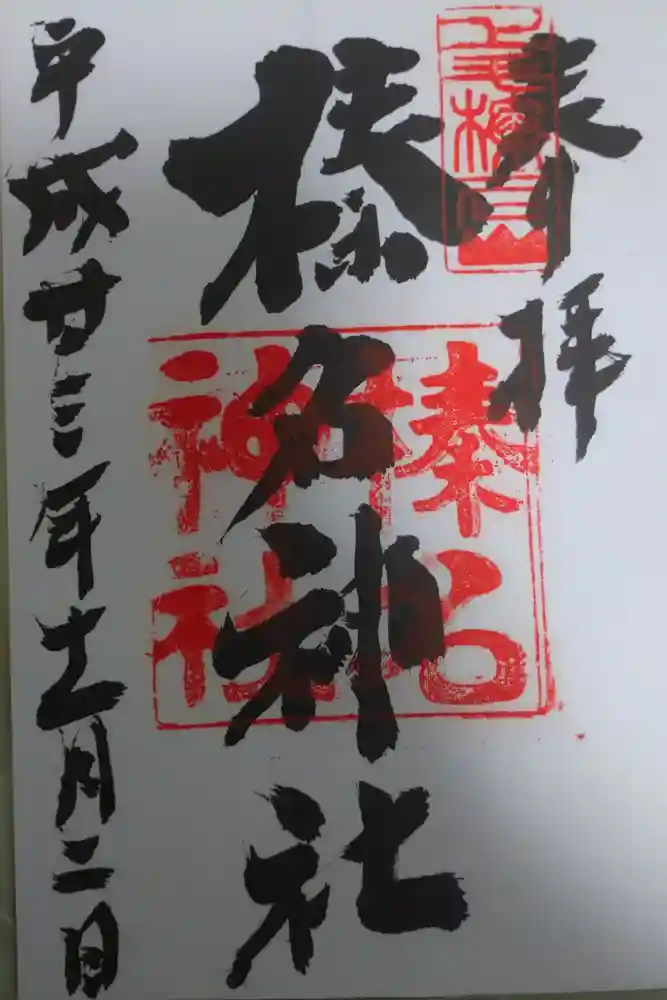 奉拝
榛名神社
平成廿三年十一月二日
榛名
神社